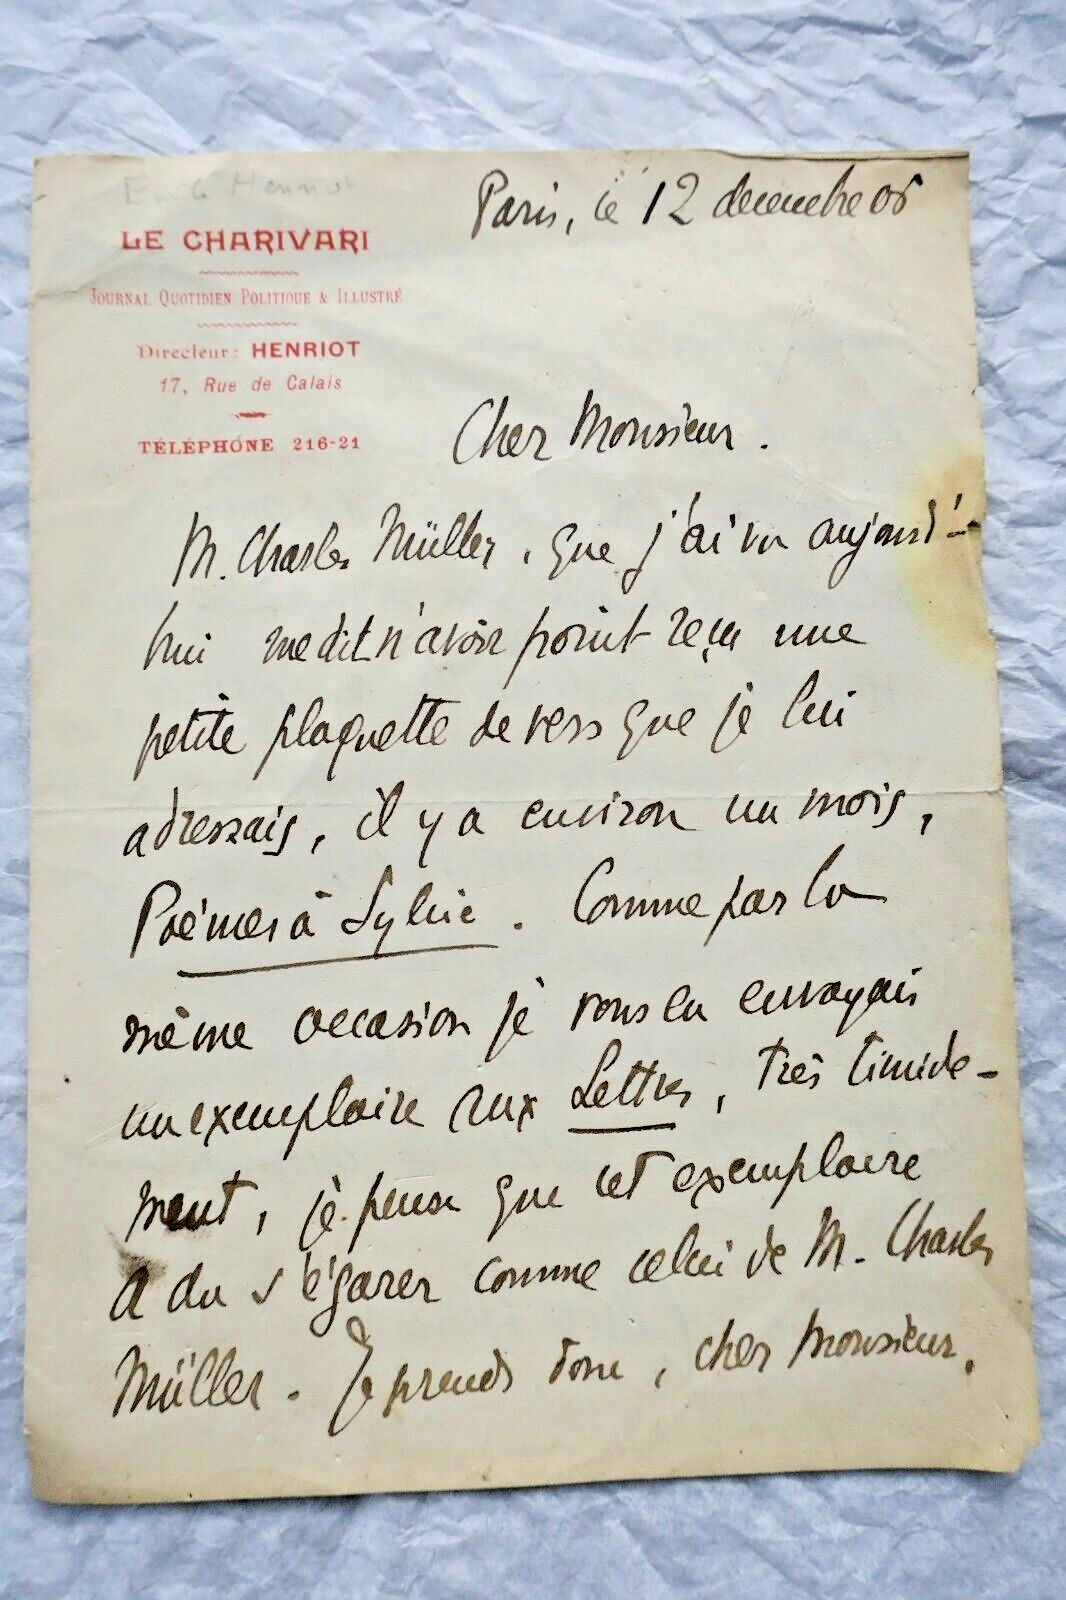 Emile Henriot
Paris, le 12 decembre 06
LE CHARIVARI
JOURNAL QUOTIDIEN POLITIQUE & ILLUSTRÉ
Directeur: HENRIOT
17, Rue de Calais
TÉLÉPHONE 216-21
Cher Monsieur.
M. Charles Müller, que j'ai vu aujourd'-
hui me dit n'avoir point reçu une
petite plaquette de vers que je lui
adressais, il y a environ un mois,
Poèmes à Sylvie. Comme par la
même occasion je vous en envoyais
un exemplaire aux Lettres, très timide-
ment, je pense que cet exemplaire
a du s'égarer comme celui de M. Charles
Müller. Je prends donc, cher Monsieur,